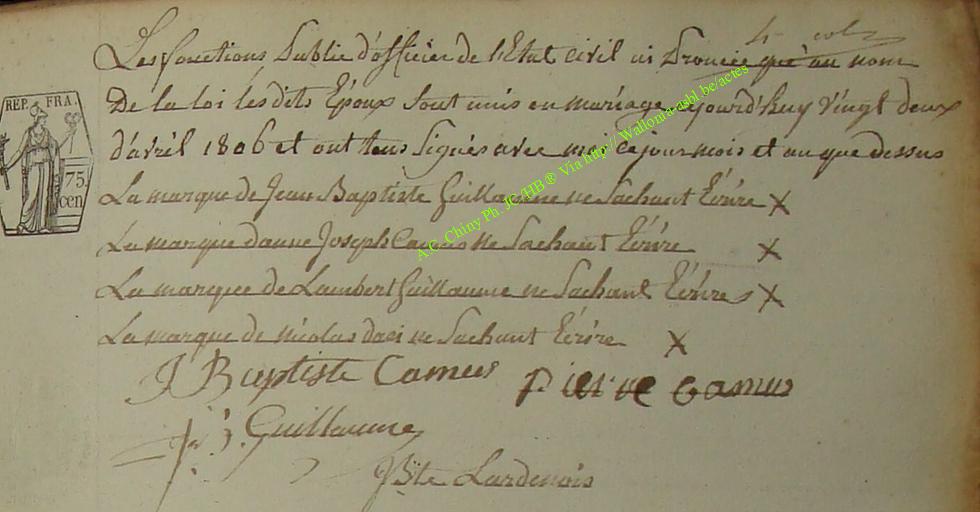 Les fonctions Public d'officier de l'Etat civil ai Prononcé qu'au nom
De la loi les dits Époux sont unis en mariage cejourd'huy Vingt deux
d'avril 1806 et ont tous Signés avec moi ce jour mois et an que dessus
La marque de Jean Baptiste Guillaume ne Sachant Ecrire X
La marque d'anne Joseph Camus ne Sachant Ecrire X
La marque de Lambert Guillaume ne Sachant Ecrire X
La marque de nicolas daci ne Sachant Ecrire X
J Baptiste Camus Pierre Camus
Guillaume
JBte Lardenois
REP. FRA.
75.
cen
A.C. Chiny Ph. JC/HB® Via http://Wallonia-asbl.be/actes